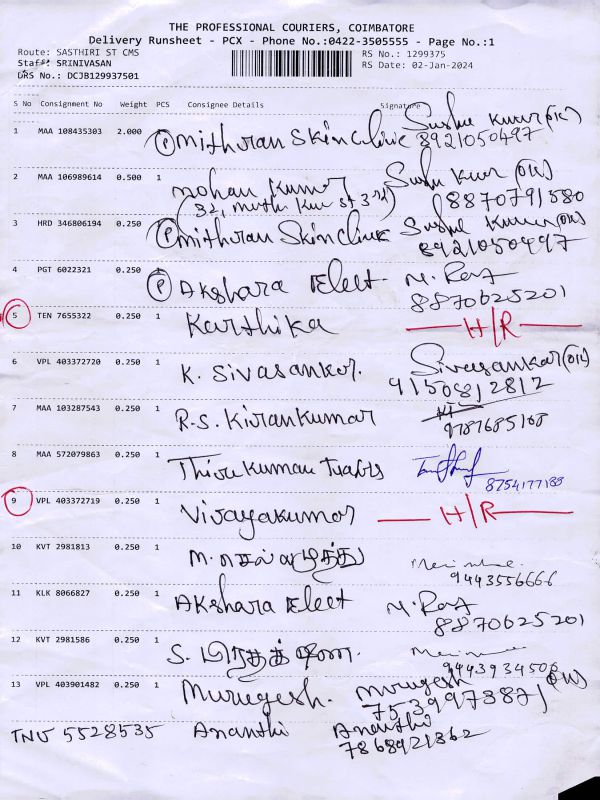 THE PROFESSIONAL COURIERS, COIMBATORE
Delivery Runsheet - PCX - Phone No.:0422-3505555 - Page No.:1
Route: SASTHIRI ST CMS
RS No.: 1299375
Staff: SRINIVASAN
RS Date: 02-Jan-2024
DRS No.: DCJB129937501
S No Consignment No Weight PCS Consignee Details Signature
1 MAA 108435303 2.000 P Mithran Skin Clinic
8921050497
2 MAA 106989614 0.500 1 Mohan Kumar
8870791580
3 HRD 346806194 0.250 P Mithran Skin Clinic
8921050497
4 PGT 6022321 0.250 P Akshara Elect M. Raj
8870625201
5 TEN 7655322 0.250 1 Karthika H/R
6 VPL 403372720 0.250 1 K. Sivasankar. Sivasankar
9150812812
7 MAA 103287543 0.250 1 R.S. Kirankumar
9787685168
8 MAA 572079863 0.250 1 Thirukumaran
8754177188
9 VPL 403372719 0.250 1 Vijayakumar H/R
10 KVT 2981813 0.250 1 M.
9443556666
11 KLK 8066827 0.250 1 Akshara Elect M. Raj
8870625201
12 KVT 2981586 0.250 1 S.
9443934506
13 VPL 403901482 0.250 1 Murugesh. Murugesh
7539973871
5528535 Ananthi Ananthi
7868921862